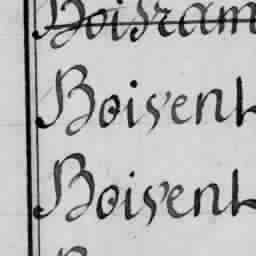 Boisram
Boisent
Boisent